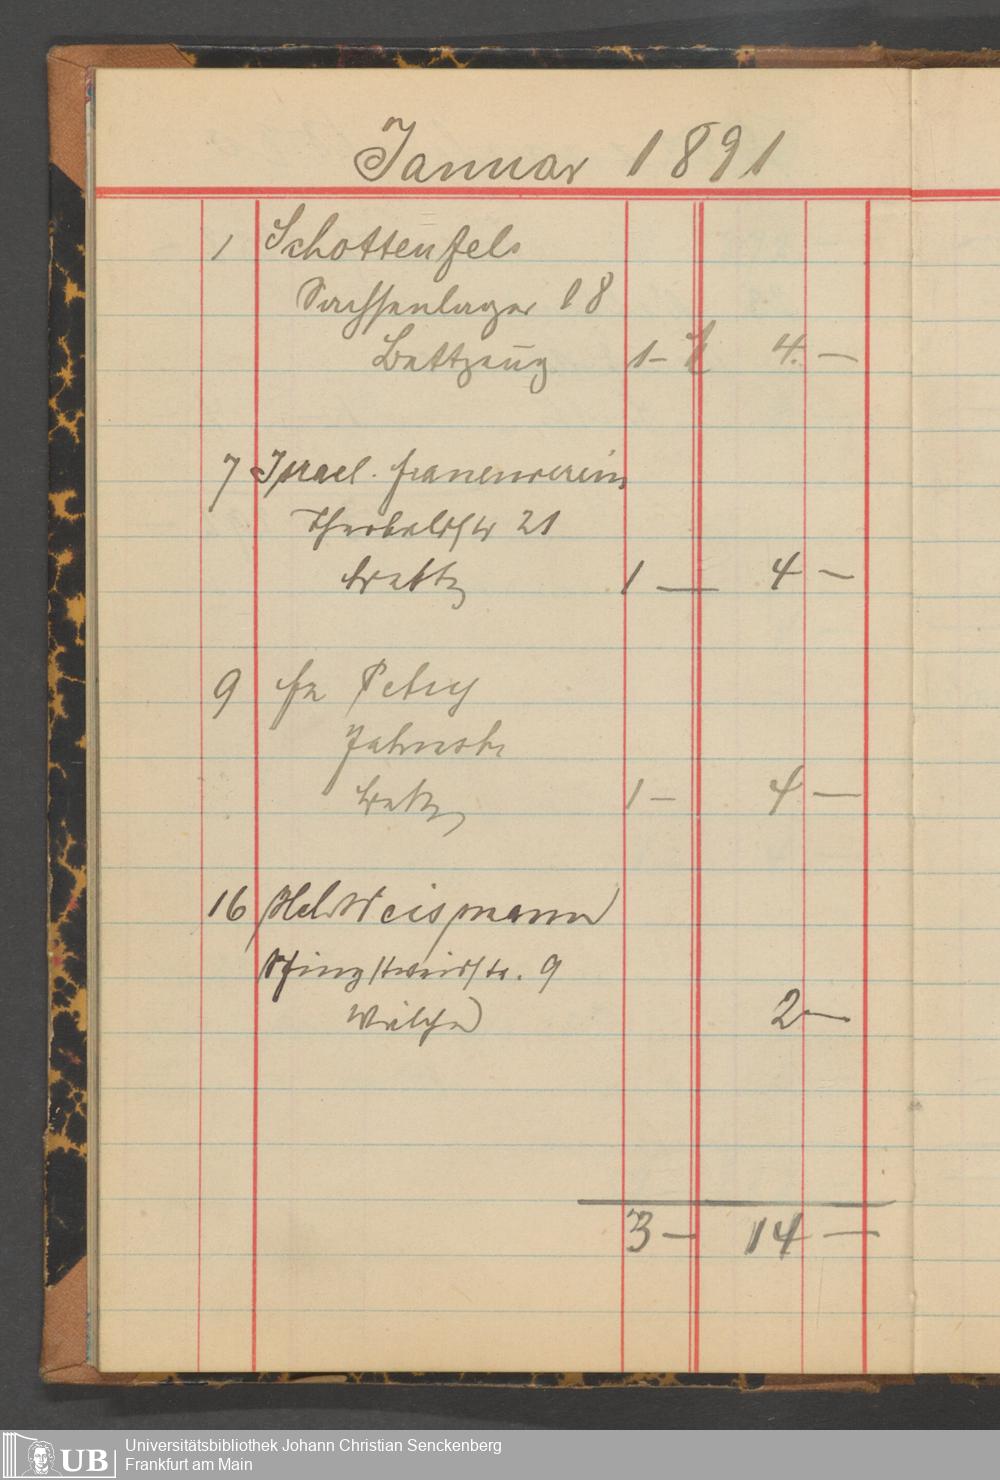 Januar 1891
1 Schottenfels
Sachsenlager 18
Bettzeug 1 — 4. —
7 Israel. Frauenverein
Theobaldstr 21
Bettz 1 — 4 —
9 Fr Petry
Jahnstr
Bettz 1 — 4 —
16 Hch Weismann
Pfingstweidstr. 9
Wäsche 2 —
3 — 14 —
UB
Universitätsbibliothek Johann Christian Senckenberg
Frankfurt am Main